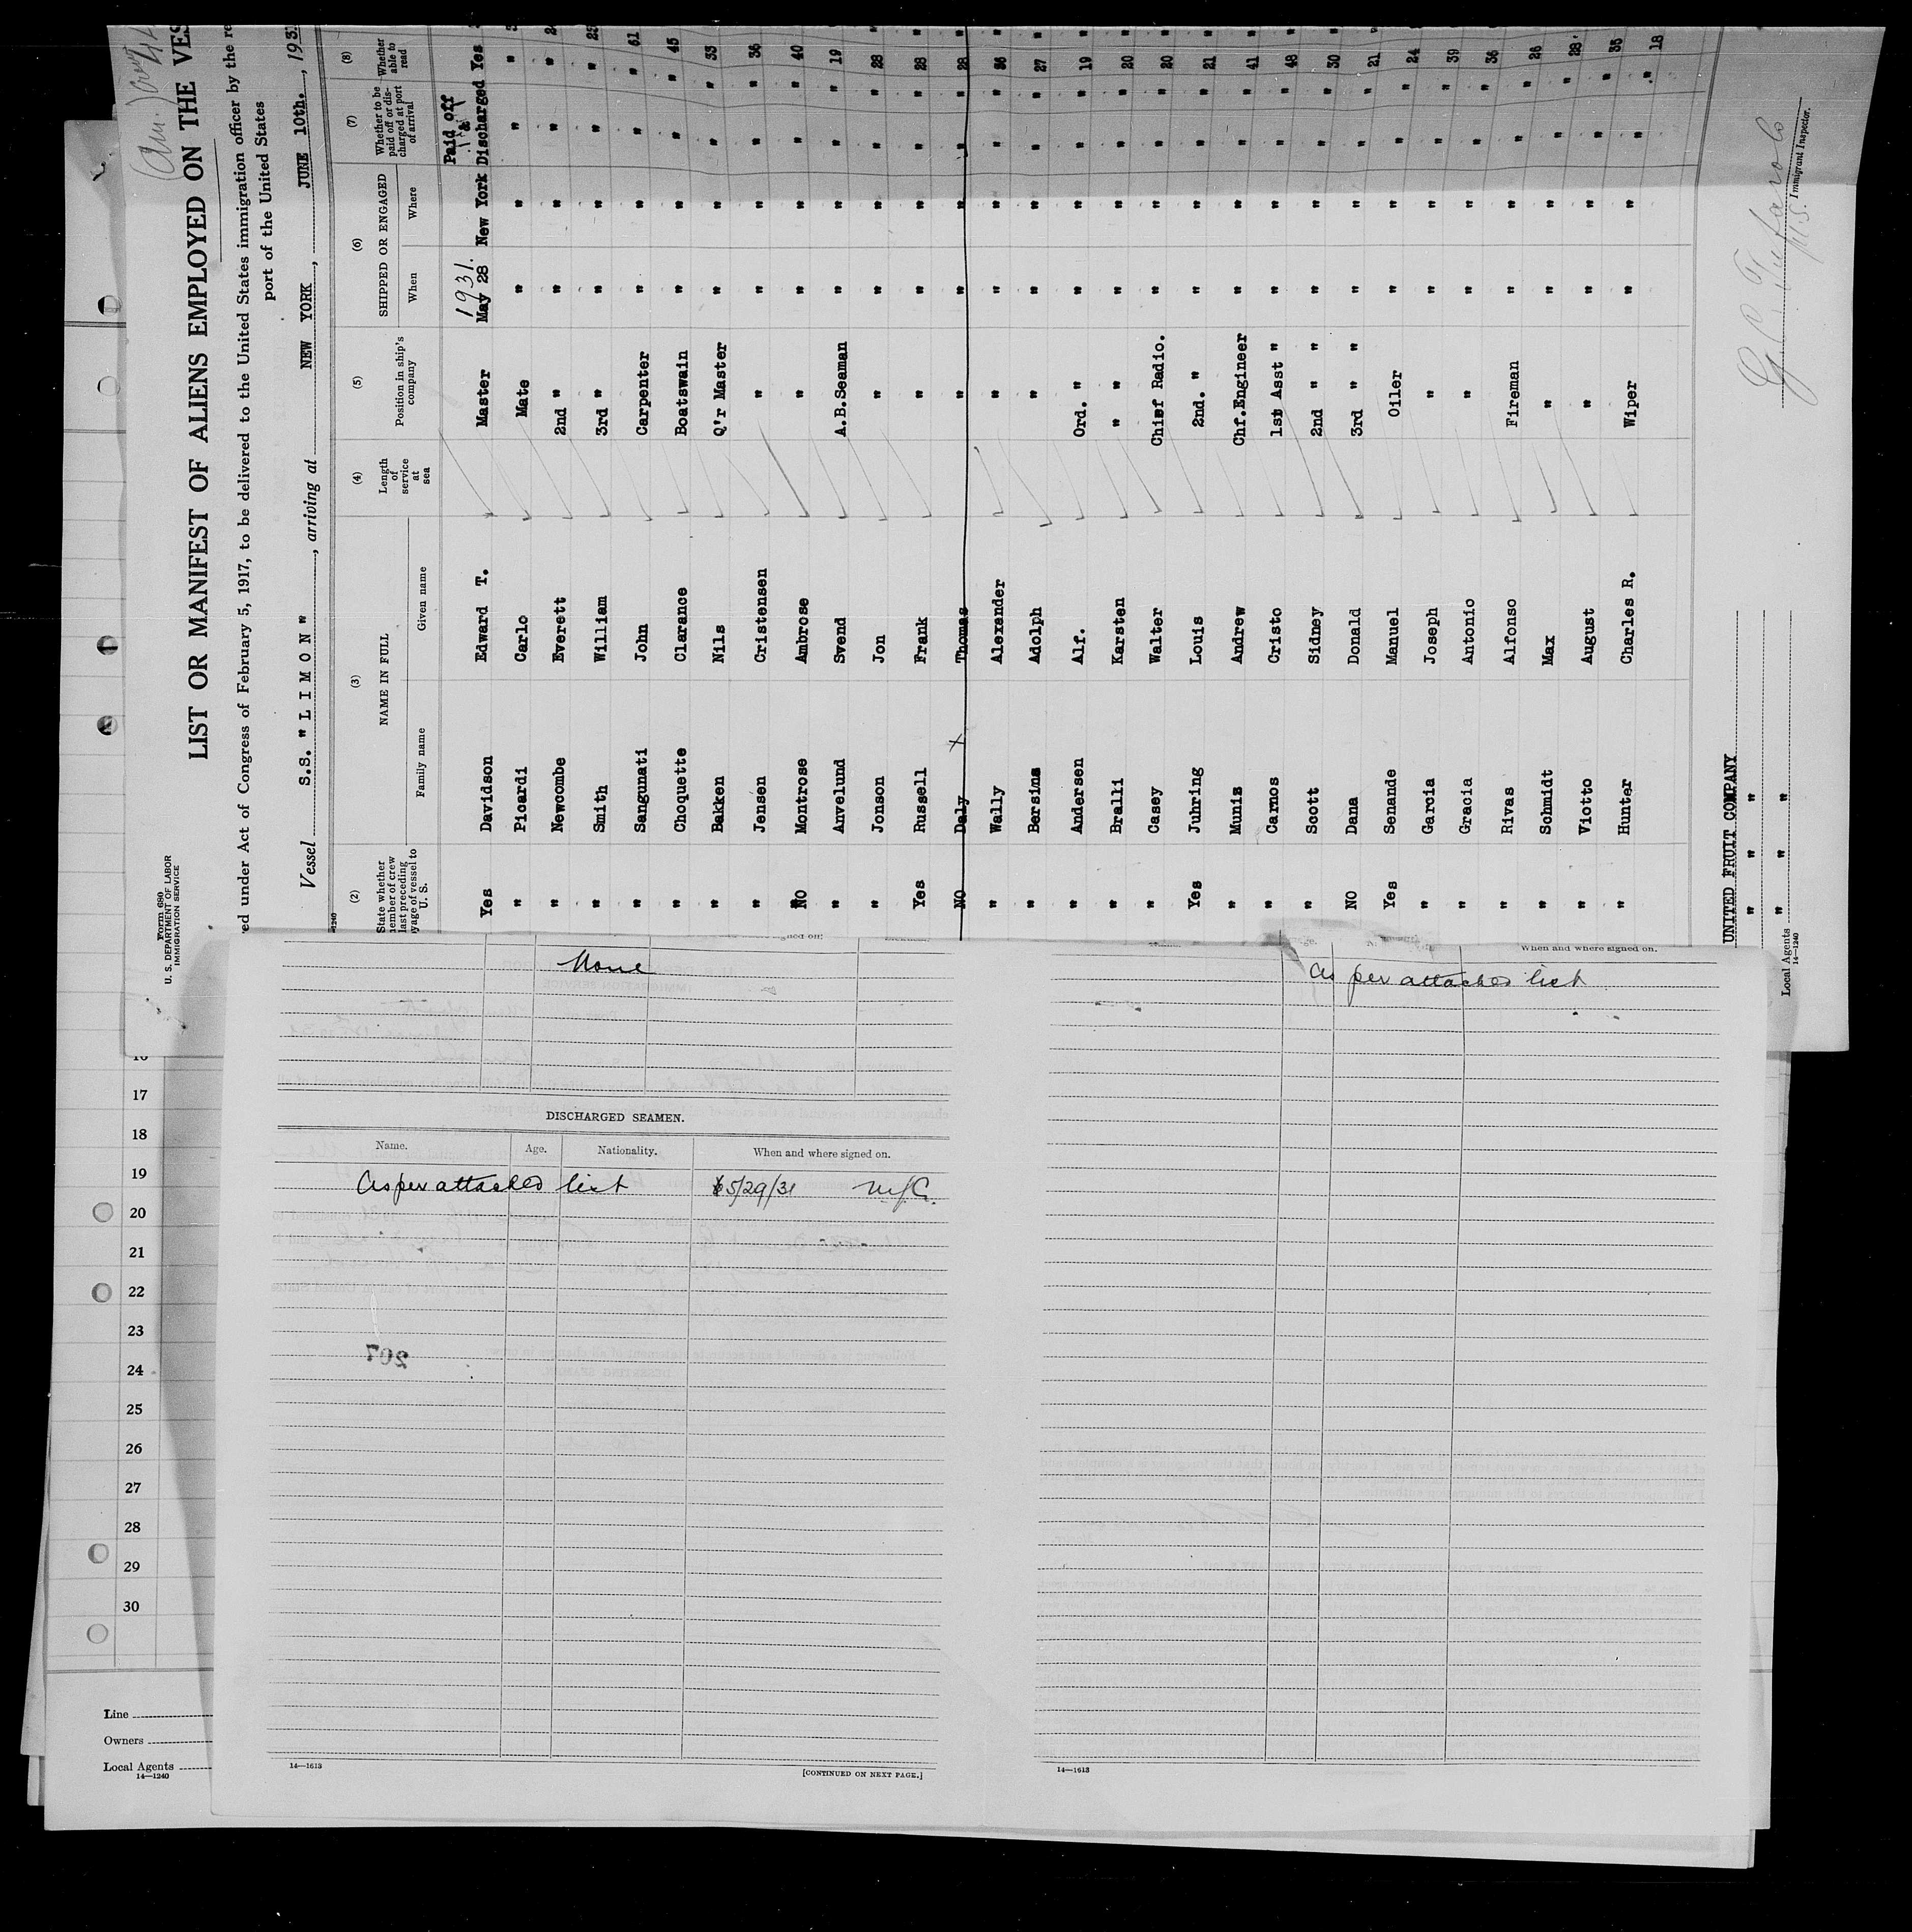 Form 680
U. S. DEPARTMENT OF LABOR
IMMIGRATION SERVICE
LIST OR MANIFEST OF ALIENS EMPLOYED ON THE VES
ed under Act of Congress of February 5, 1917, to be delivered to the United States immigration officer by the re
port of the United States
Vessel S.S. "LIMON", arriving at NEW YORK, JUNE 10th., 193
(2) (3) (4) (5) (6) (7) (8)
State whether member of crew last preceding voyage of vessel to U. S.
NAME IN FULL
Family name Given name
Length of service at sea
Position in ship's company
SHIPPED OR ENGAGED
When Where
Whether to be paid off or discharged at port of arrival
Whether able to read
1931. Paid off &
Yes Davidson Edward T. Master May 28 New York Discharged Yes
" Picardi Carlo Mate " " " "
" Newcombe Everett 2nd " " " " "
" Smith William 3rd " " " " " 25
" Sangunati John Carpenter " " " " 61
" Choquette Clarance Boatswain " " " " 45
" Bakken Nils Q'r Master " " " " 33
" Jensen Cristensen " " " " " 36
NO Montrose Ambrose " " " " " 40
" Anvelund Svend A.B.Seaman " " " " 19
" Jonson Jon " " " " " 28
Yes Russell Frank " " " " " 28
NO Daly Thomas " " " " " 28
" Wally Alexander " " " " " 36
" Bersins Adolph " " " " " 27
" Andersen Alf. Ord. " " " " " 19
" Bralli Karsten " " " " " " 20
" Casey Walter Chief Radio. " " " " 20
Yes Juhring Louis 2nd. " " " " " 21
" Muniz Andrew Chf.Engineer " " " " 41
" Carnos Cristo 1st Asst " " " " " 48
" Scott Sidney 2nd " " " " " " 30
NO Dana Donald 3rd " " " " " " 21
Yes Senande Manuel Oiler " " " " 24
" Garcia Joseph " " " " " 39
" Gracia Antonio " " " " " 36
" Rivas Alfonso Fireman " " " " 26
" Schmidt Max " " " " " 28
" Viotto August " " " " " 35
" Hunter Charles R. Wiper " " " " 18
UNITED FRUIT COMPANY
" " "
Local Agents " " "
14—1240
Immigrant Inspector.
None
DISCHARGED SEAMEN.
Name. Age. Nationality. When and where signed on.
As per attached list 5/29/31 NYC.
207
14—1613
[CONTINUED ON NEXT PAGE.]
When and where signed on.
As per attached list
14—1613
16
17
18
19
20
21
22
23
24
25
26
27
28
29
30
Line
Owners
Local Agents
14—1240